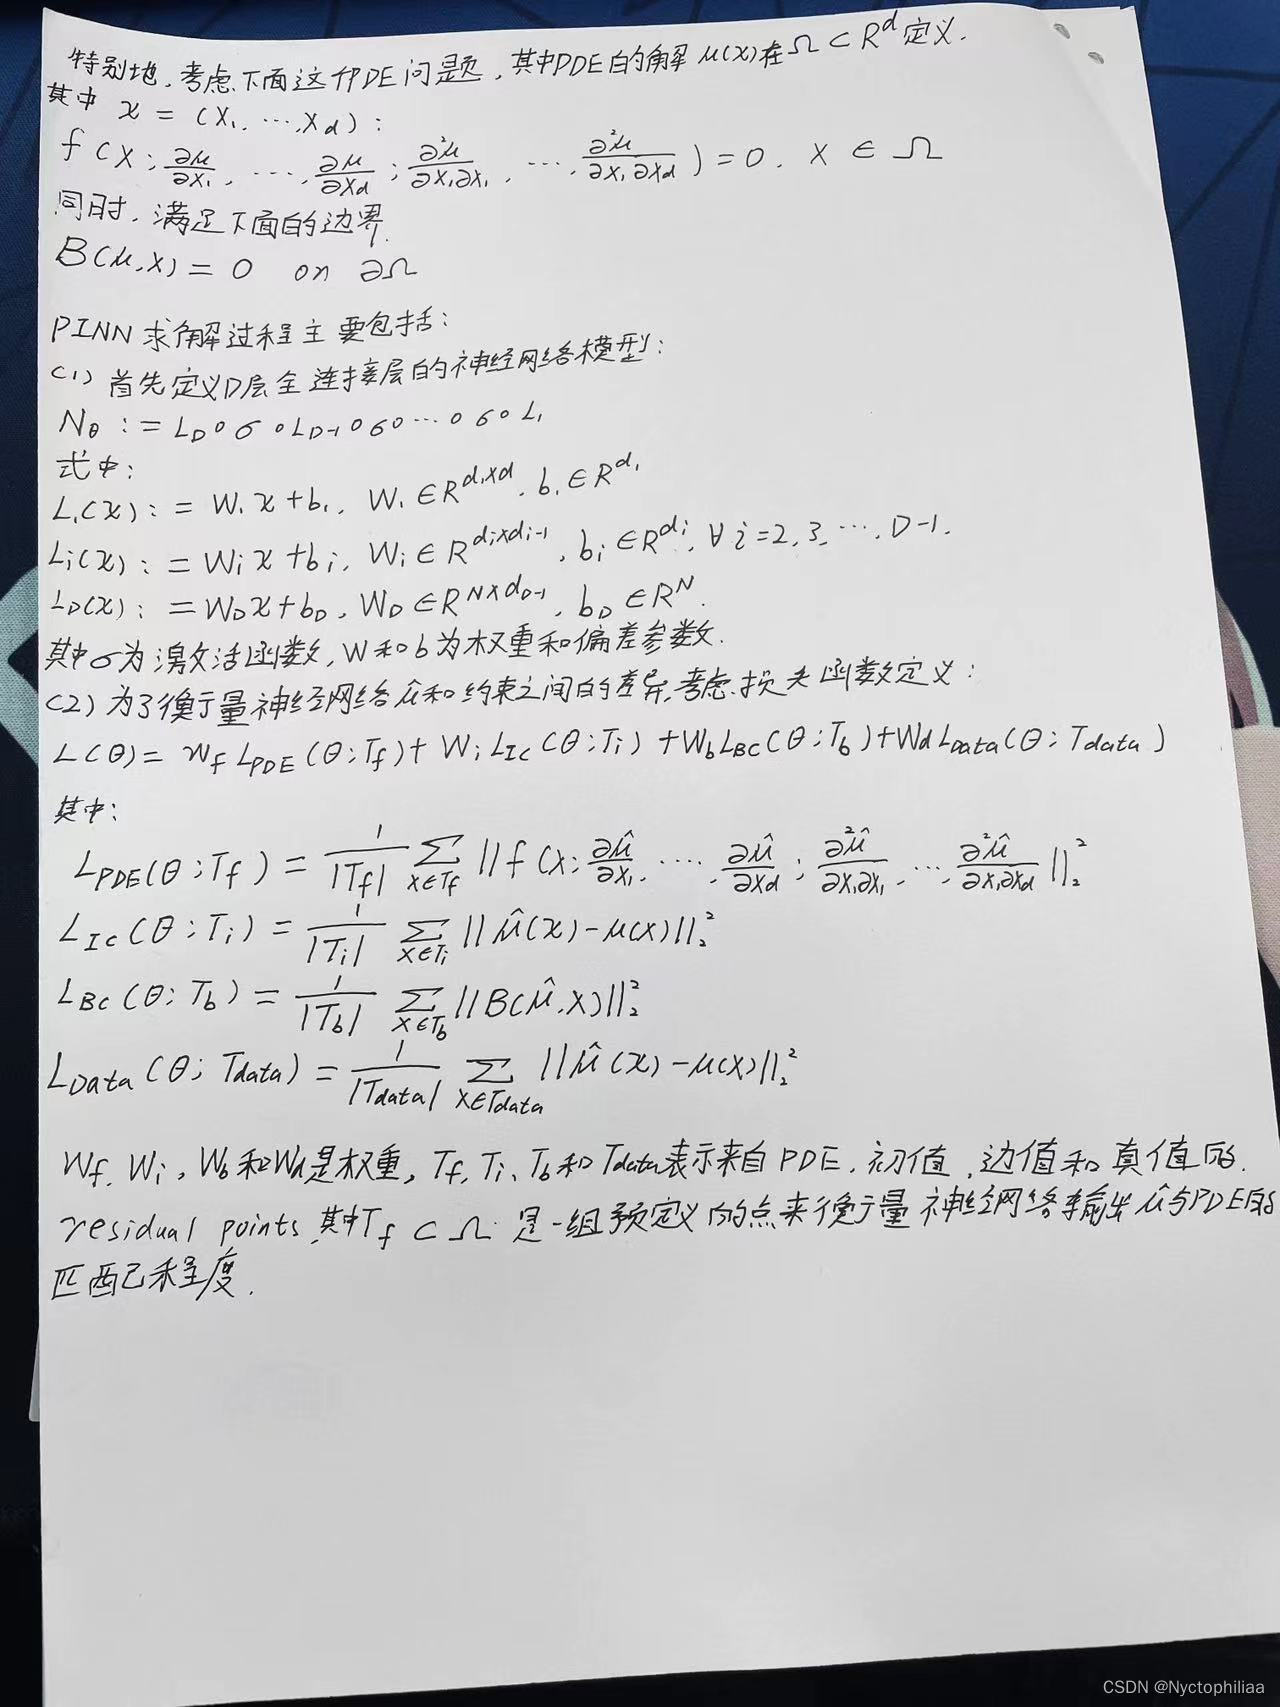 特别地,考虑下面这个PDE问题,其中PDE的解 μ(x)在Ω⊂R^d定义.
其中 x = (x₁, ⋯, x_d):
f(x; ∂μ/∂x₁, ⋯, ∂μ/∂x_d; ∂²μ/∂x₁∂x₁, ⋯, ∂²μ/∂x₁∂x_d) = 0, x ∈ Ω
同时,满足下面的边界.
B(μ,x) = 0 on ∂Ω
PINN求解过程主要包括:
(1) 首先定义D层全连接层的神经网络模型:
N_θ := L_D∘σ∘L_{D-1}∘σ∘⋯∘σ∘L₁
式中:
L₁(x) := W₁x+b₁, W₁∈R^{d₁×d}, b₁∈R^{d₁}
L_i(x) := W_i x+b_i, W_i∈R^{d_i×d_{i-1}}, b_i∈R^{d_i}, ∀ i=2,3,⋯,D-1.
L_D(x) := W_D x+b_D, W_D∈R^{N×d_{D-1}}, b_D∈R^N.
其中σ为激活函数,W和b为权重和偏差参数.
(2) 为了衡量神经网络û和约束之间的差异,考虑损失函数定义:
L(θ) = w_f L_PDE(θ;T_f) + W_i L_IC(θ;T_i) + W_b L_BC(θ;T_b) + W_d L_Data(θ;T_data)
其中:
L_PDE(θ;T_f) = 1/|T_f| ∑_{x∈T_f} ||f(x; ∂μ̂/∂x₁, ⋯, ∂μ̂/∂x_d; ∂²μ̂/∂x₁∂x₁, ⋯, ∂²μ̂/∂x₁∂x_d||₂²
L_IC(θ;T_i) = 1/|T_i| ∑_{x∈T_i} ||μ̂(x)-μ(x)||₂²
L_BC(θ;T_b) = 1/|T_b| ∑_{x∈T_b} ||B(μ̂,x)||₂²
L_Data(θ;T_data) = 1/|T_data| ∑_{x∈T_data} ||μ̂(x)-μ(x)||₂²
W_f, W_i, W_b和W_d是权重, T_f, T_i, T_b和T_data表示来自PDE, 初值, 边值和真值的.
residual points,其中T_f ⊂ Ω 是一组预定义的点来衡量神经网络输出μ̂与PDE的
匹配程度.
CSDN @Nyctophiliaa